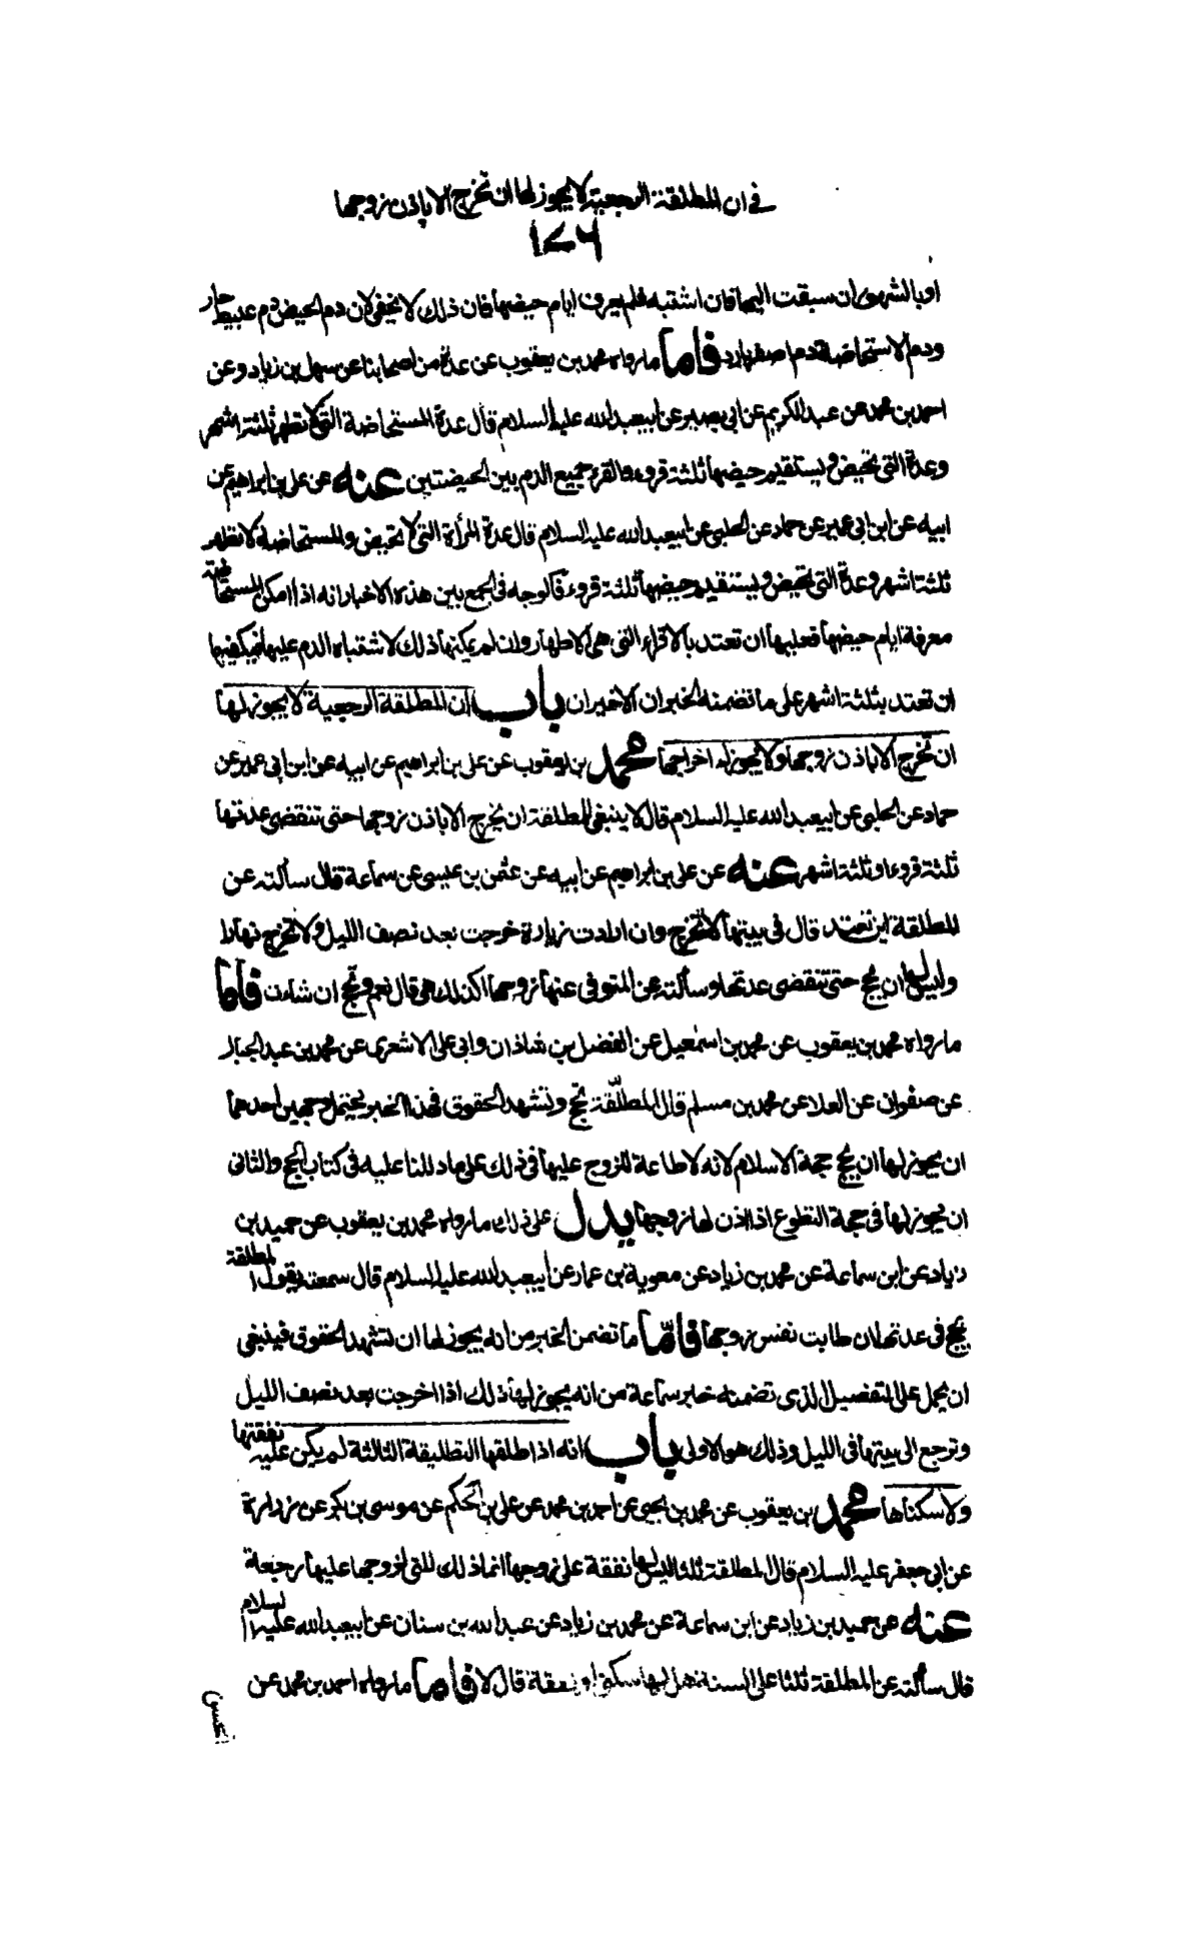 في ان المطلقة الرجعية لا يجوز لها ان تخرج الا باذن زوجها
١٧٦
او بالشهور ان سبقت اليها فان اشتبه فلم يعرف ايام حيضها فان ذلك لا يخفى لان دم الحيض دم عبيط حار
ودم الاستحاضة دم اصفر بارد فاما ما رواه محمد بن يعقوب عن عدة من اصحابنا عن سهل بن زياد وعن
احمد بن محمد عن عبد الكريم عن ابي بصير عن ابيعبد الله عليه السلام قال عدة المستحاضة التي لا تطهر ثلثة اشهر
وعدة التي تحيض ويستقيم حيضها ثلثة قروء والقرء جميع الدم بين الحيضتين عنه عن علي بن ابراهيم عن
ابيه عن ابن ابي عمير عن حماد عن الحلبي عن ابيعبد الله عليه السلام قال عدة المرأة التي لا تحيض والمستحاضة لا تطهر
ثلثة اشهر وعدة التي تحيض ويستقيم حيضها ثلثة قروء فالوجه في الجمع بين هذه الاخبار انه اذا امكن المستحاضة
معرفة ايام حيضها فعليها ان تعتد بالاقراء التي هي الاطهار وان لم يمكنها ذلك لاشتباه الدم عليها فيكفيها
ان تعتد بثلثة اشهر على ما تضمنه الخبران الاخيران باب ان المطلقة الرجعية لا يجوز لها
ان تخرج الا باذن زوجها ولا يجوز له اخراجها محمد بن يعقوب عن علي بن ابراهيم عن ابيه عن ابن ابي عمير عن
حماد عن الحلبي عن ابيعبد الله عليه السلام قال لا ينبغي للمطلقة ان يخرج الا باذن زوجها حتى تنقضي عدتها
ثلثة قروء او ثلثة اشهر عنه عن علي بن ابراهيم عن ابيه عن عثمن بن عيسى عن سماعة قال سألته عن
المطلقة اين تعتد قال في بيتها لا تخرج وان ارادت زيارة خرجت بعد نصف الليل ولا تخرج نهارا
وليس لها ان يحج حتى تنقضي عدتها وسألته عن المتوفى عنها زوجها اكذلك هي قال نعم وتحج ان شاءت فاما
ما رواه محمد بن يعقوب عن محمد بن اسمعيل عن الفضل بن شاذان وابي علي الاشعري عن محمد بن عبد الجبار
عن صفوان عن العلا عن محمد بن مسلم قال المطلّقة تحج وتشهد الحقوق فهذا الخبر يحتمل وجهين احدهما
ان يجوز لها ان يحج حجة الاسلام لانه لا طاعة للزوج عليها في ذلك على ما دللنا عليه في كتاب الحج والثاني
ان يجوز لها في حجة التطوع اذا اذن لها زوجها يدل على ذلك ما رواه محمد بن يعقوب عن حميد بن
زياد عن ابن سماعة عن محمد بن زياد عن معوية بن عمار عن ابيعبد الله عليه السلام قال سمعته يقول المطلقة
يحج في عدتها ان طابت نفس زوجها فامّا ما تضمن الخبر من انه يجوز لها ان تشهد الحقوق فينبغي
ان يحمل على التفصيل الذي تضمنه خبر سماعة من انه يجوز لها ذلك اذا اخرجت بعد نصف الليل
وترجع الى بيتها في الليل وذلك هو الاولى باب انه اذا طلقها التطليقة الثالثة لم يكن عليه نفقتها
ولا سكناها محمد بن يعقوب عن محمد بن يحيى عن احمد بن محمد عن علي بن الحكم عن موسى بن بكر عن زرارة
عن ابي جعفر عليه السلام قال المطلقة ثلثا ليس لها نفقة على زوجها انما ذلك للتي لزوجها عليها رجعة
عنه عن حميد بن زياد عن ابن سماعة عن محمد بن زياد عن عبد الله بن سنان عن ابيعبد الله عليه السلام
قال سألته عن المطلقة ثلثا على السنة هل لها سكنى او نفقة قال لا فاما ما رواه احمد بن محمد عن